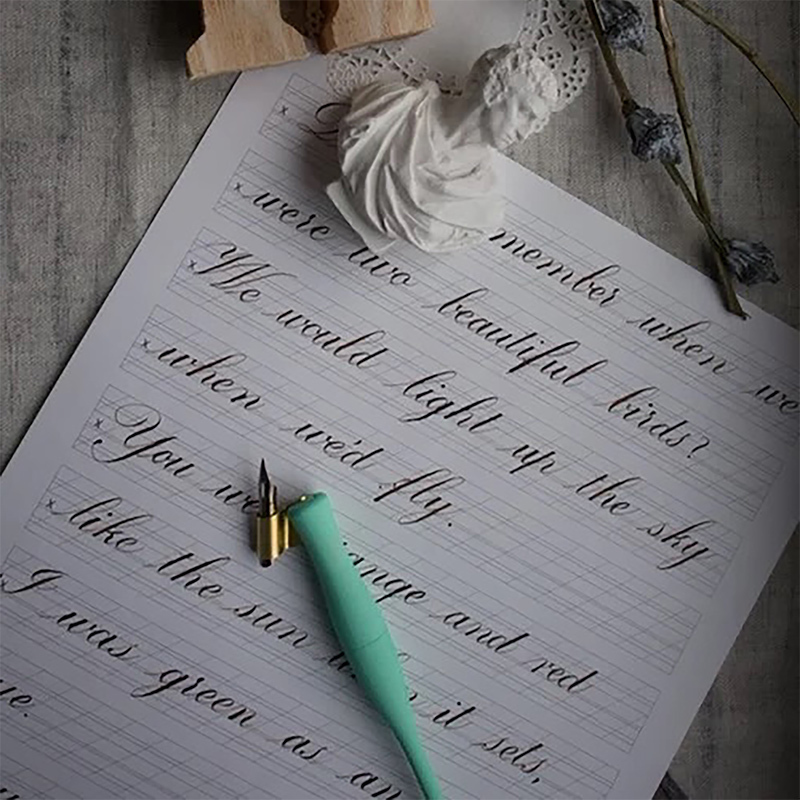 member when we
were two beautiful birds?
We would light up the sky
when we'd fly.
You we ange and red
like the sun it sets,
I was green as an
ye.